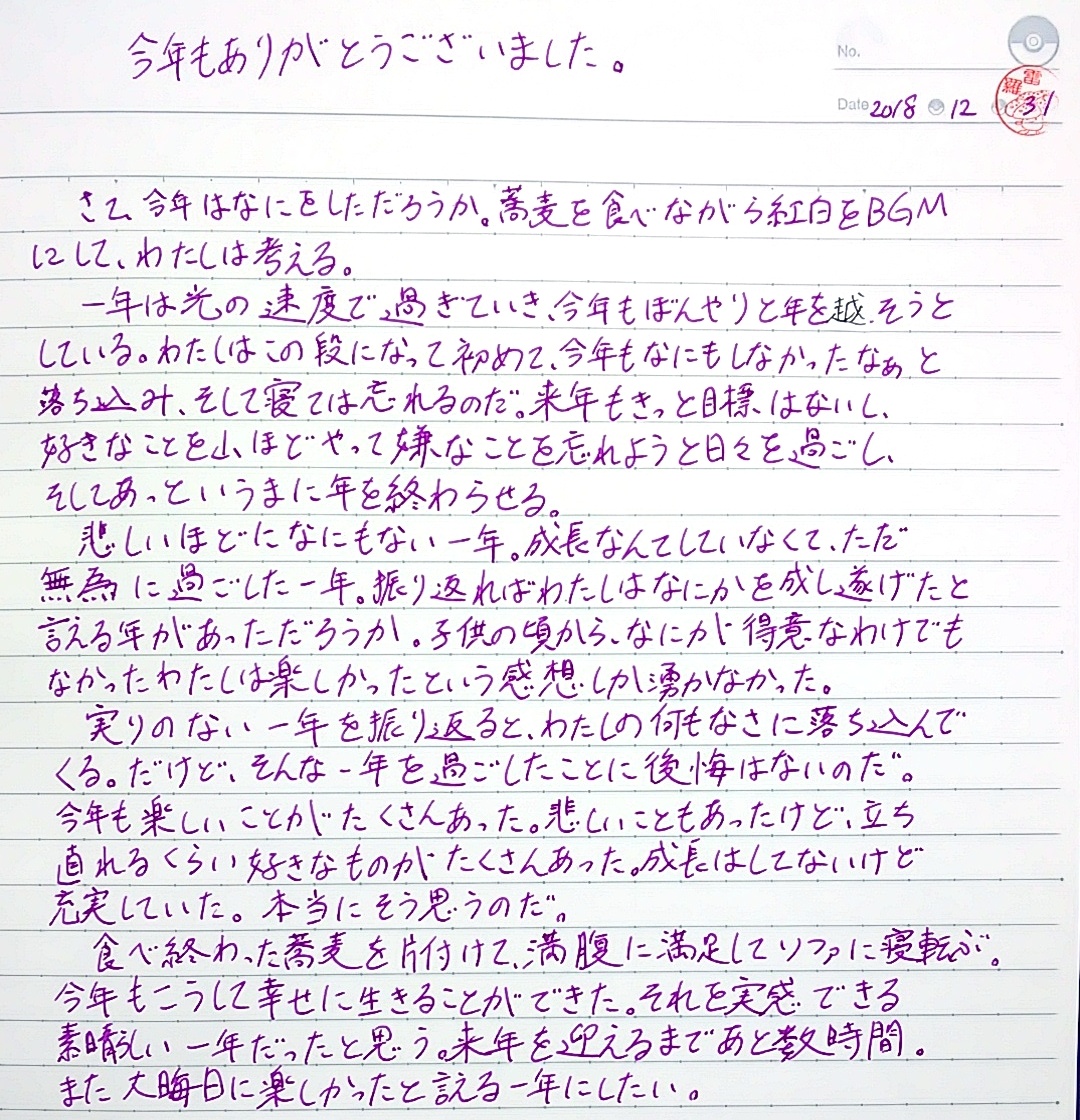 今年もありがとうございました。
No.
Date 2018 12 31
雷
羅
さて、今年はなにをしただろうか。蕎麦を食べながら紅白をBGM
にして、わたしは考える。
一年は光の速度で過ぎていき、今年もぼんやりと年を越そうと
している。わたしはこの段になって初めて、今年もなにもしなかったなぁと
落ち込み、そして寝ては忘れるのだ。来年もきっと目標はないし、
好きなことを山ほどやって嫌なことを忘れようと日々を過ごし、
そしてあっというまに年を終わらせる。
悲しいほどになにもない一年。成長なんてしていなくて、ただ
無為に過ごした一年。振り返ればわたしはなにかを成し遂げたと
言える年があっただろうか。子供の頃から、なにかが得意なわけでも
なかったわたしは楽しかったという感想しか湧かなかった。
実りのない一年を振り返ると、わたしの何もなさに落ち込んで
くる。だけど、そんな一年を過ごしたことに後悔はないのだ。
今年も楽しいことがたくさんあった。悲しいこともあったけど、立ち
直れるくらい好きなものがたくさんあった。成長はしてないけど
充実していた。本当にそう思うのだ。
食べ終わった蕎麦を片付けて、満腹に満足してソファに寝転ぶ。
今年もこうして幸せに生きることができた。それを実感できる
素晴らしい一年だったと思う。来年を迎えるまであと数時間。
また大晦日に楽しかったと言える一年にしたい。